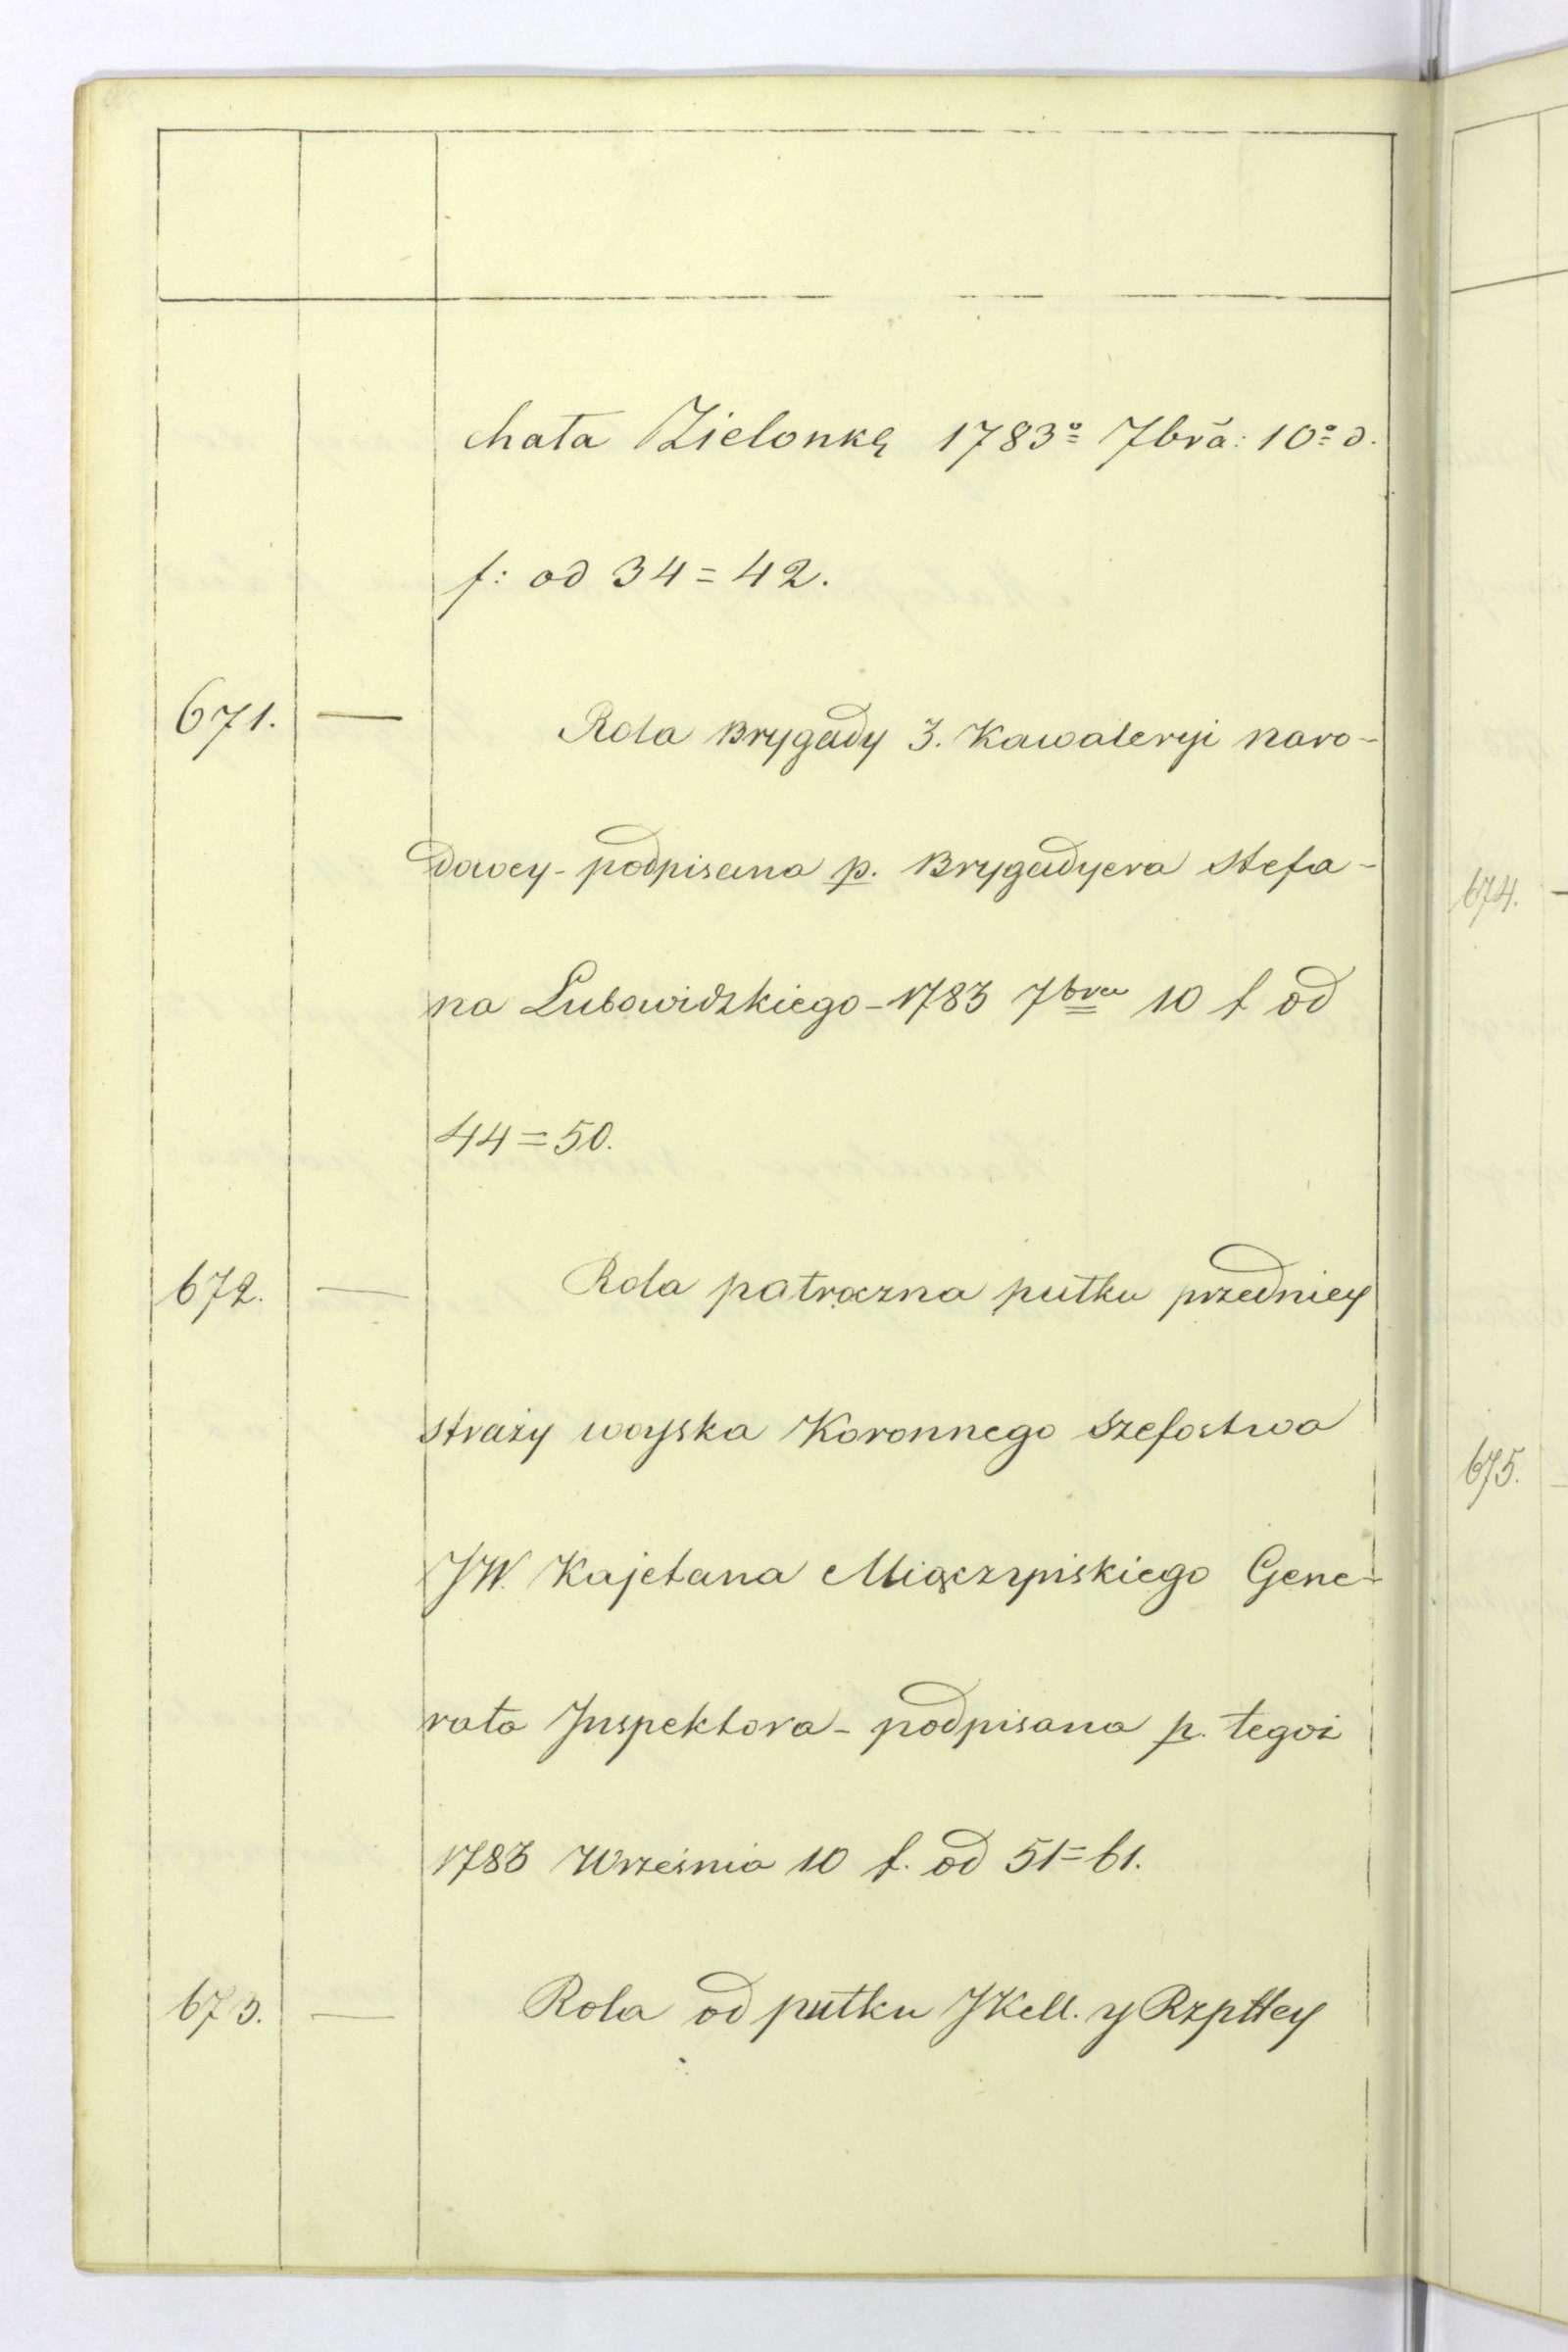 chała Zielonkę 1783º 7bra: 10º d.
f: od 34=42.
671. — Rola Brygady 3. Kawaleryi naro-
dowey - podpisana p. Brygadyera Stefa-
na Lubowidzkiego - 1783 7bra 10 f od
44=50.
672. — Rola patrączna pułku przedniey
straży woyska Koronnego Szefostwa
JW. Kajetana Miączyńskiego Gene-
rała Inspektora - podpisana p. tegoż
1783 Września 10 f. od 51=61.
673. — Rola od pułku JKell. y Rzpltey
674. —
675.